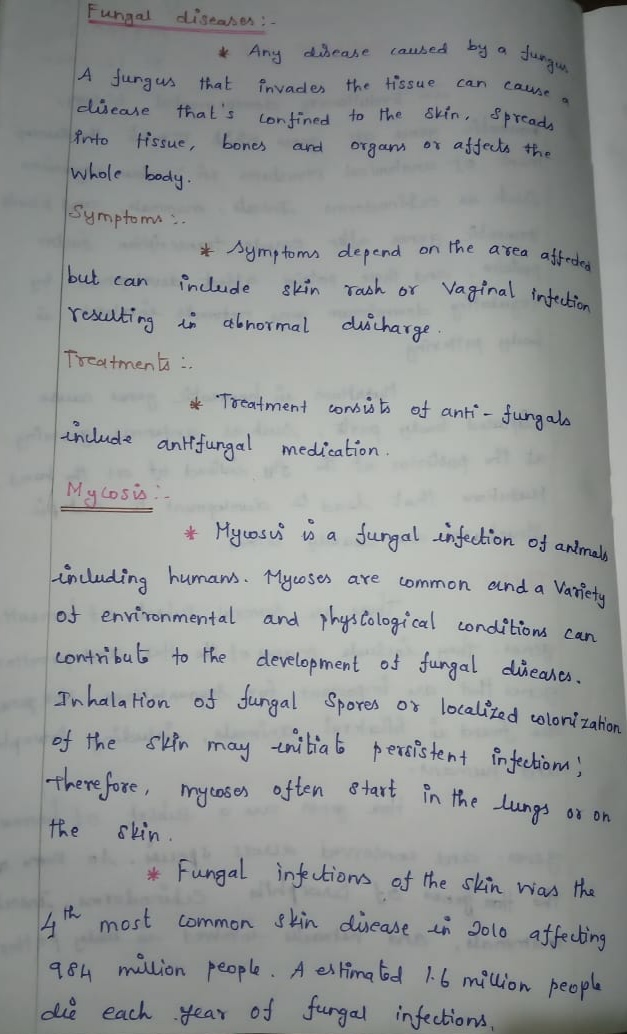 Fungal diseases :-
* Any disease caused by a fungus
A fungus that invades the tissue can cause a
disease that's confined to the skin, spreads
into tissue, bones and organs or affects the
whole body.
Symptoms :-
* Symptoms depend on the area affected
but can include skin rash or Vaginal infection
resulting in abnormal discharge.
Treatments :-
* Treatment consists of anti-fungals
include antifungal medication.
Mycosis :-
* Mycosis is a fungal infection of animals
including humans. Mycoses are common and a Variety
of environmental and physiological conditions can
contribute to the development of fungal diseases.
Inhalation of fungal spores or localized colonization
of the skin may initiate persistent infections;
therefore, mycoses often start in the lungs or on
the skin.
* Fungal infections of the skin was the
4th most common skin disease in 2010 affecting
984 million people. A estimated 1.6 million people
die each year of fungal infections.